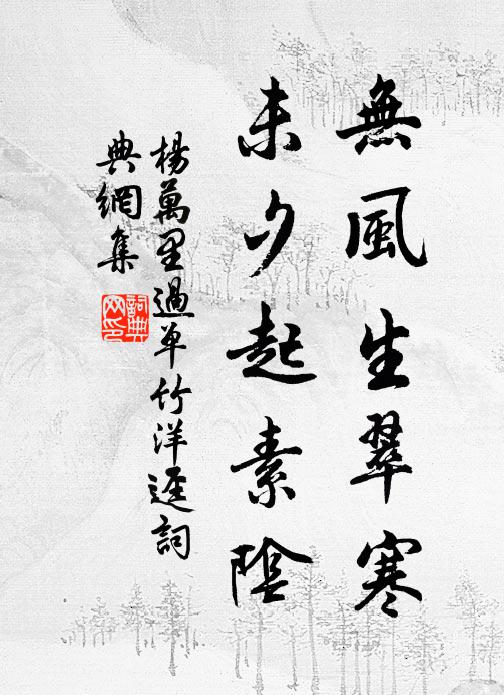 無風生翠寒
未夕起素陰
楊萬里過單竹洋逕詞
典網集
詞典
网印